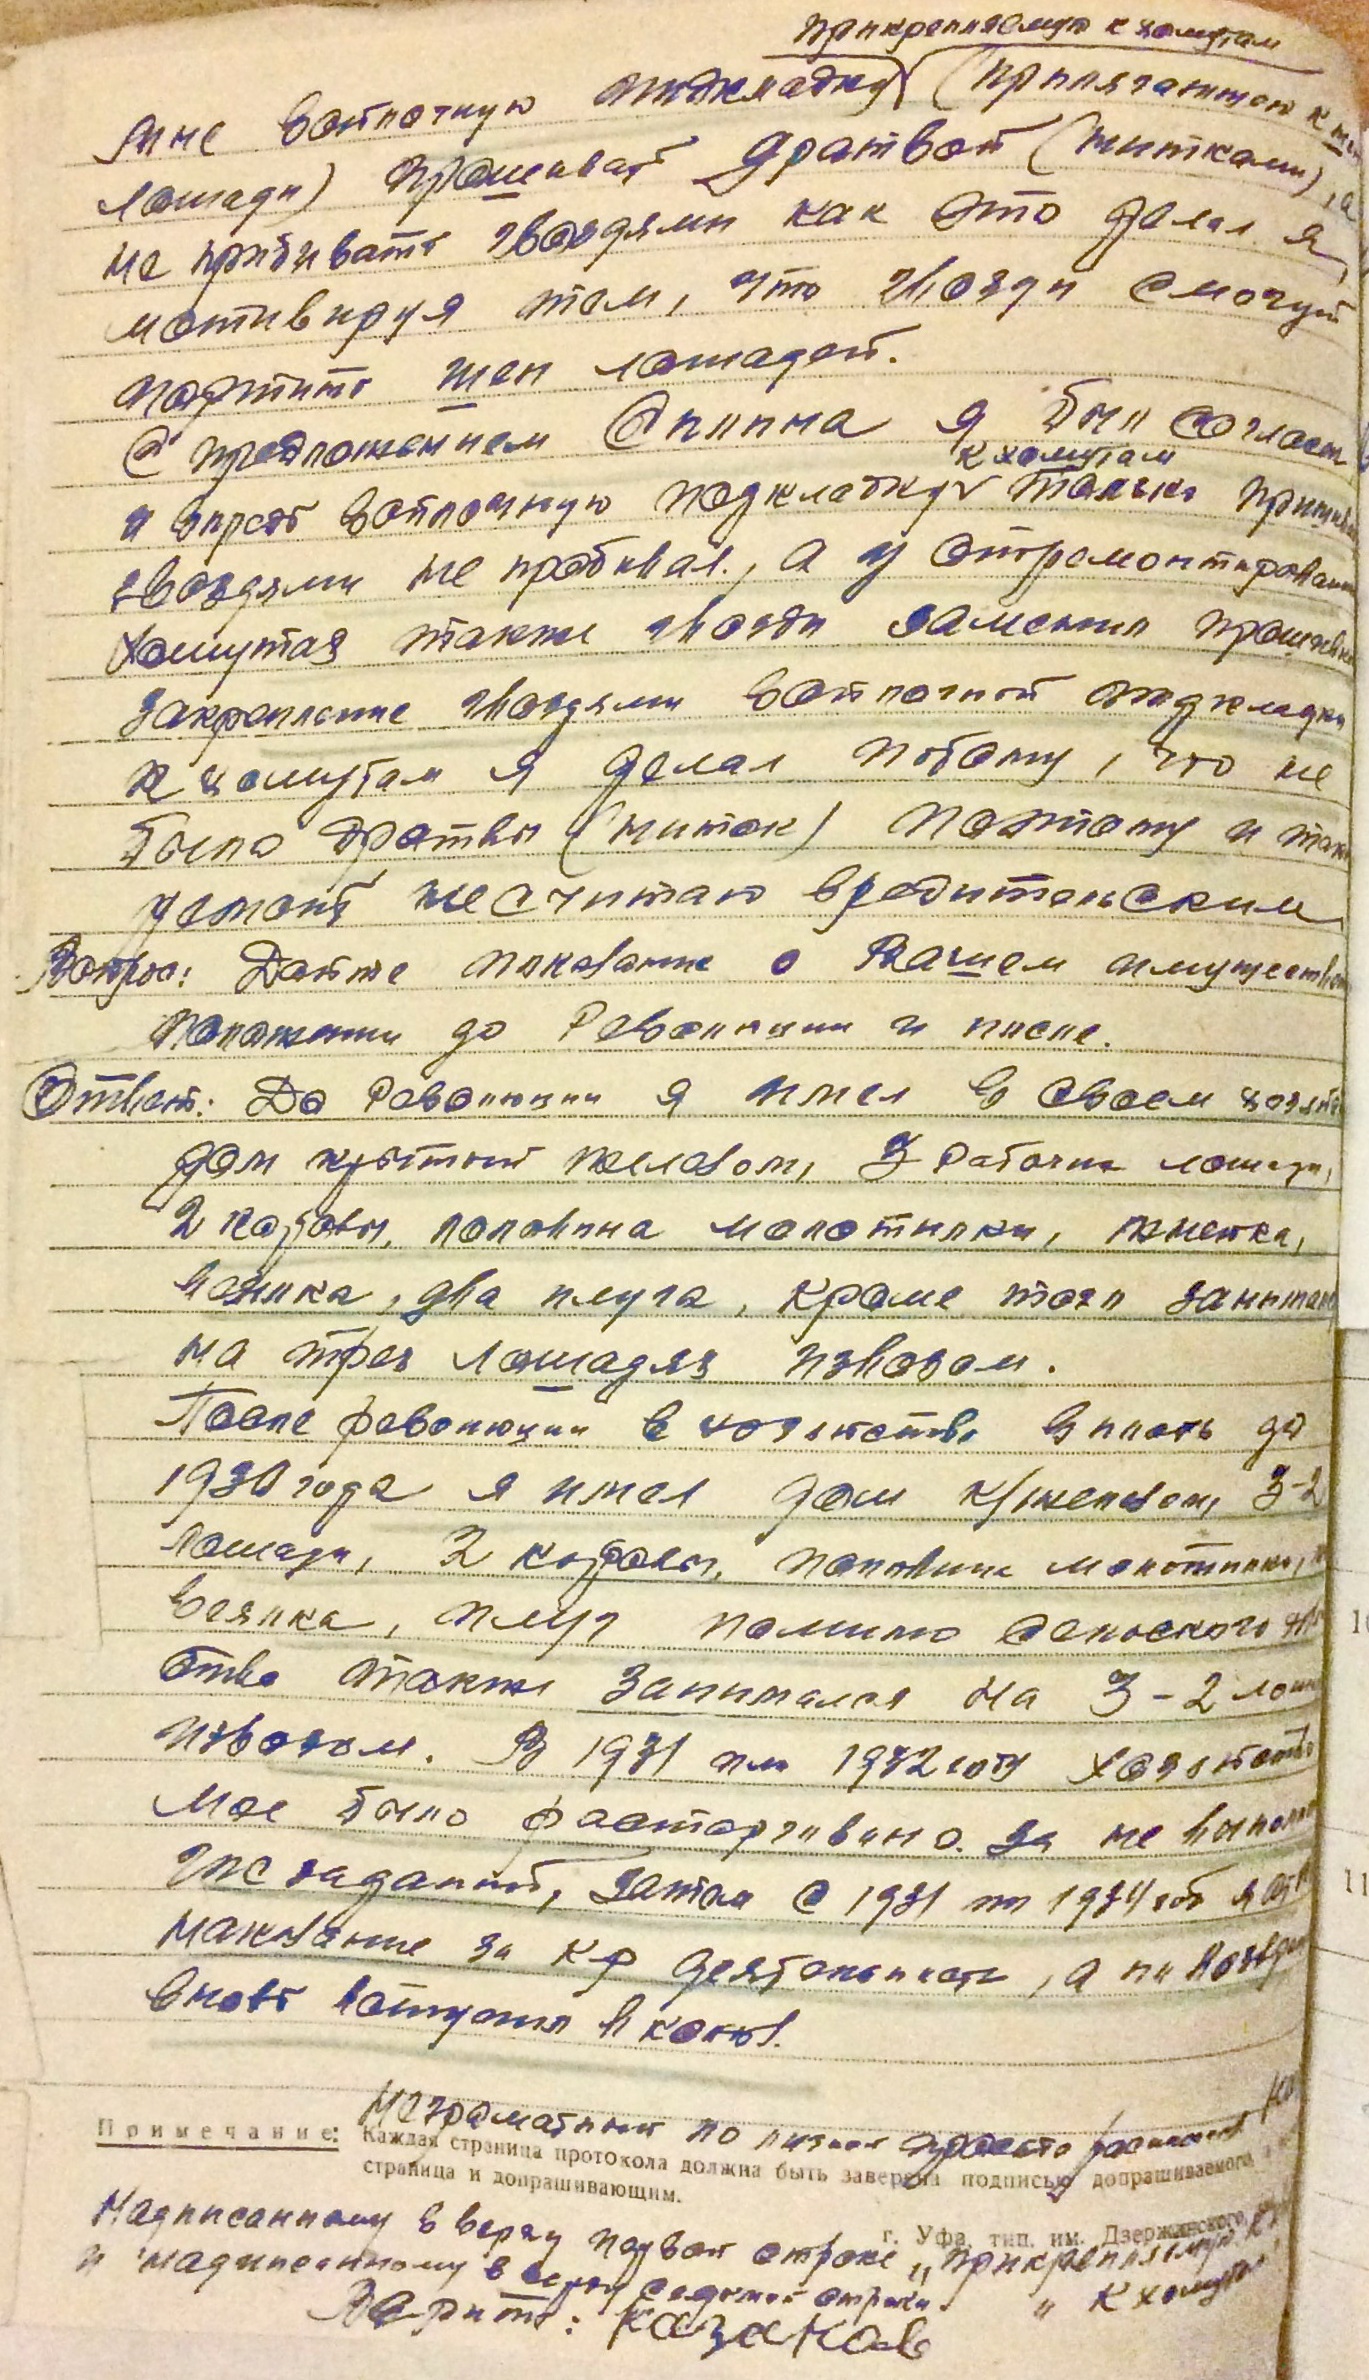 прикрепляемую к хомутам
мне войлочную подкладку (прилягающею к
лошади) прошивать дратвой (нитками), а
не прибивать гвоздями как это делал я,
мотивируя тем, что гвозди смогут
портить шеи лошадей.
С предложением Силина я был согласен
к хомутам
и впредь войлочную подкладку только
гвоздями не пробивал, а у отремонтирован
хомутах также гвозди заменил
Закрепление гвоздями войлочной подкладки
к хомутам я делал потому, что не
было дратвы (ниток) поэтому и
ремонт не считаю вредительским
Вопрос: Дайте показание о Вашем имуществен
положении до Революции и после.
Ответ: До Революции я имел в своем
дом крытый железом, 3 рабочих лошади,
2 коровы, половина молотилки, жнейка,
веялка, два плуга, кроме того
на трех лошадях извозом.
После революции в хозяйстве вплоть до
1930 года я имел дом кр/железом, 3-2
лошади, 2 коровы, половина молотилки,
веялка, плуг помимо сельского
ства также занимался на 3-2
извозом. В 1931 или 1932 году хозяйство
мое было расторгивано. за не выполне
ние заданий, затем с 1931 по 1934 год я
наказание за к р деятельность, а по
вновь поступил в колхоз.
Неграмотный
Примечание: Каждая страница протокола должна быть заверена подписью допрашиваемого,
страница и допрашивающим.
г. Уфа, тип. им. Дзержинского
Надписанному вверху первой строке "прикрепляемую
и надписанному вверху седьмой строки " к хомутам
Верить: Казаков